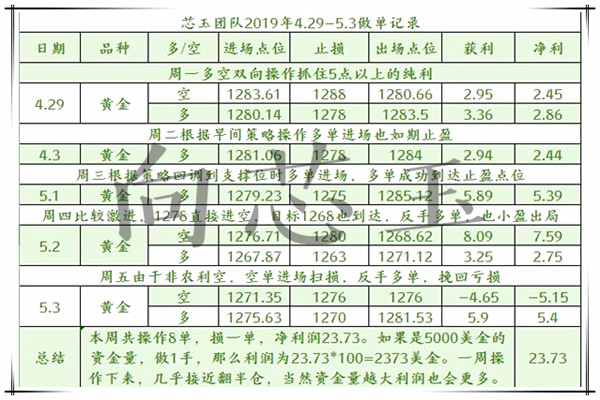 芯玉团队2019年4.29-5.3做单记录
日期 品种 多/空 进场点位 止损 出场点位 获利 净利
周一多空双向操作抓住5点以上的纯利
4.29 黄金 空 1283.61 1288 1280.66 2.95 2.45
多 1280.14 1278 1283.5 3.36 2.86
周二根据早间策略操作多单进场也如期止盈
4.3 黄金 多 1281.06 1278 1284 2.94 2.44
周三根据策略回调到支撑位时多单进场，多单成功到达止盈点位
5.1 黄金 多 1279.23 1275 1285.12 5.89 5.39
周四比较激进，1278直接进空，目标1268也到达，反手多单，也小盈出局
5.2 黄金 空 1276.71 1280 1268.62 8.09 7.59
多 1267.87 1263 1271.12 3.25 2.75
周五由于非农利空，空单进场扫损，反手多单，挽回亏损
5.3 黄金 空 1271.35 1276 1276 -4.65 -5.15
多 1275.63 1270 1281.53 5.9 5.4
总结 本周共操作8单，损一单，净利润23.73。如果是5000美金的
资金量，做1手，那么利润为23.73*100=2373美金。一周操
作下来，几乎接近翻半仓，当然资金量越大利润也会更多。 23.73
向芯玉